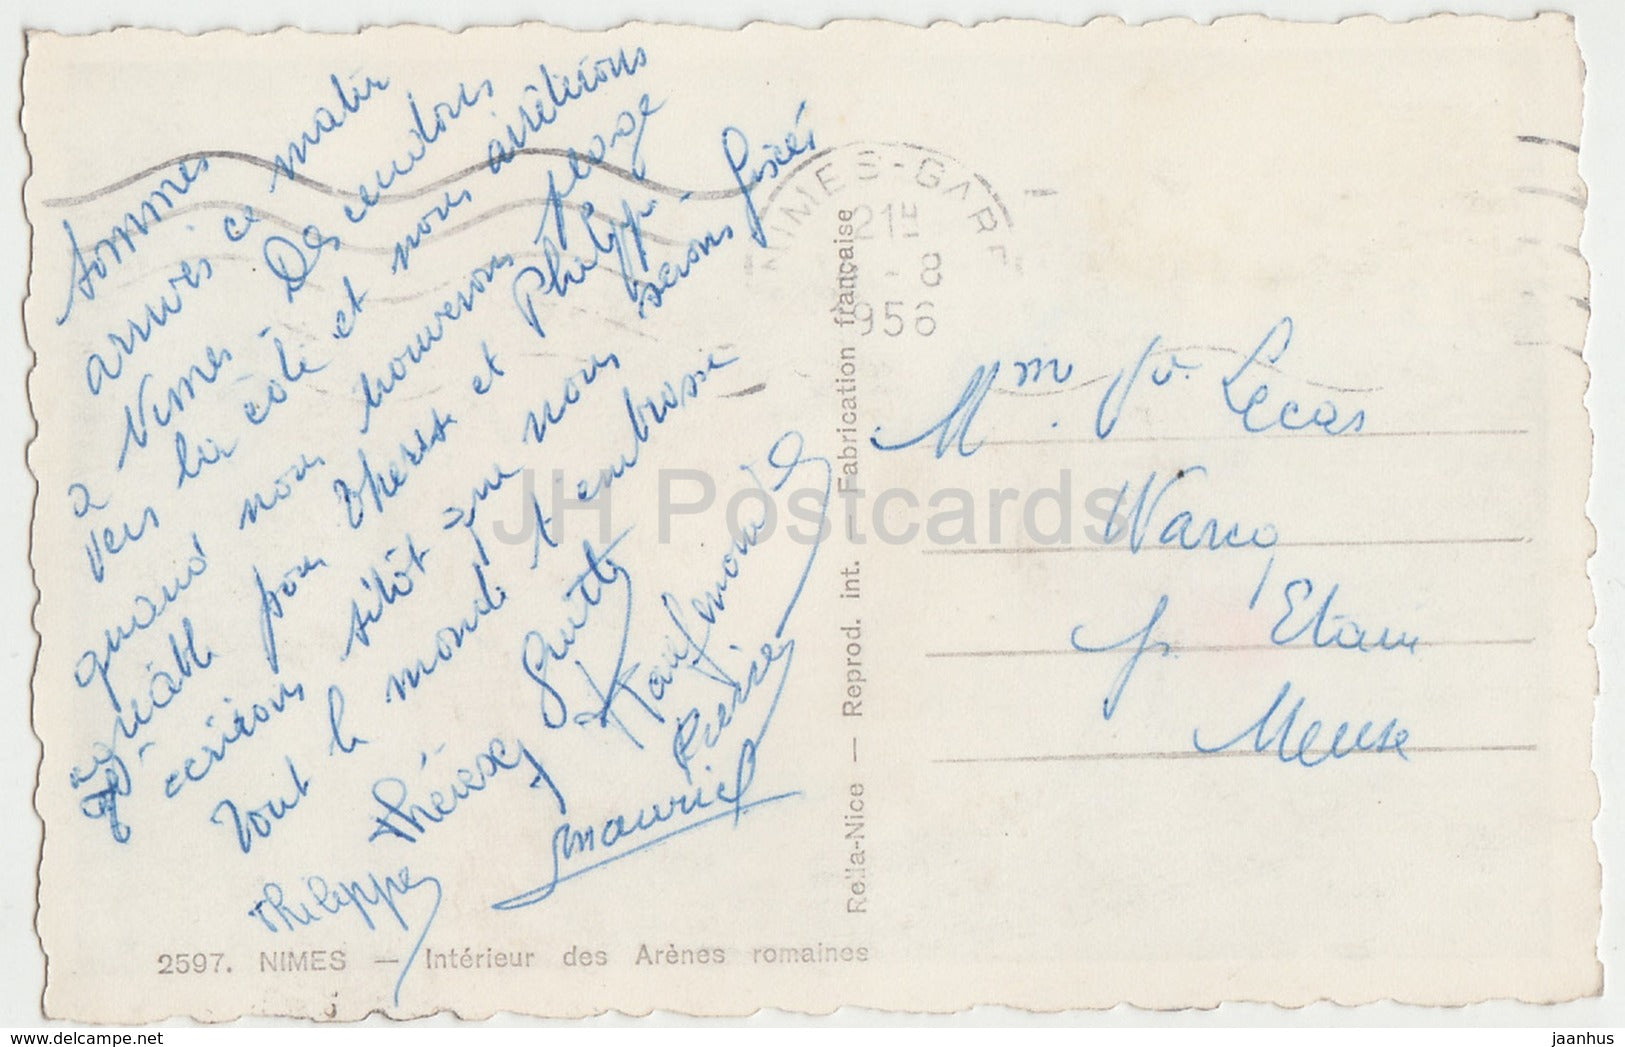 Sommes
arrivés ce matin
à Nimes - Descendons
vers la côte et nous arrêterons
quand nous trouverons plage
agréable pour Therese et Philippe -
écrirons sitôt que nous serons fixés
Tout le monde t'embrasse
Thérèse
Philippe
Maurice
NIMES-GARE
21H
8
1956
Mme Vve Lecas
Warcq
pr Etain
Meuse
Rella-Nice — Reprod. int. — Fabrication française
2597. NIMES — Intérieur des Arènes romaines
JH Postcards
jaanhus
www.delcampe.net